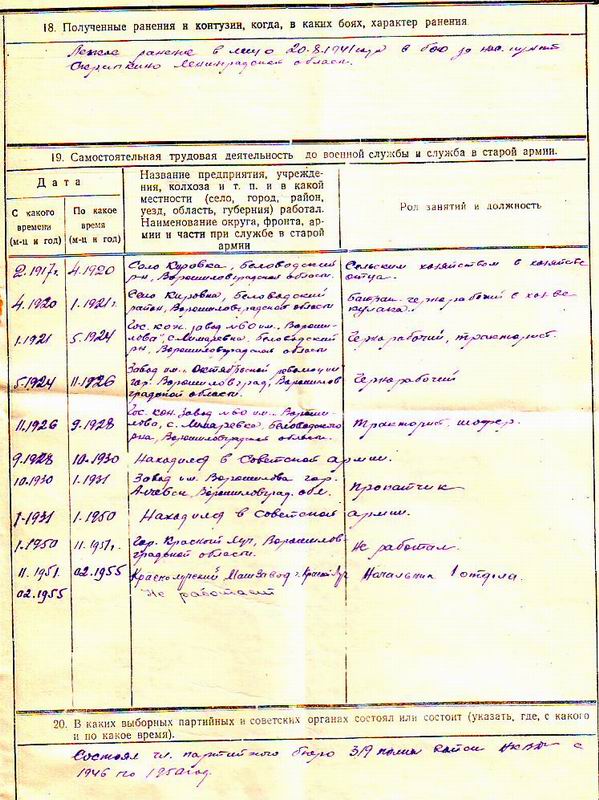 18. Полученные ранения и контузии, когда, в каких боях, характер ранения
Легкое ранение в лицо 20.8.1941 года в бою за нас. пункт
Скрипкино Ленинградской области.
19. Самостоятельная трудовая деятельность до военной службы и служба в старой армии.
Дата
С какого времени (м-ц и год)
По какое время (м-ц и год)
Название предприятия, учрежде-
ния, колхоза и т. п. и в какой
местности (село, город, район,
уезд, область, губерния) работал.
Наименование округа, фронта, ар-
мии и части при службе в старой
армии
Род занятий и должность
2.1917г. 4.1920 Село Кировка, Беловодский
р-н, Ворошиловградской области.
Сельским хозяйством в хозяйстве
отца.
4.1920 1.1921г. Село Кировка, Беловодский
район, Ворошиловградской области
батрак-чернорабочий в хоз-ве
кулака.
1.1921 5.1924 Гос. кон. завод №60 им. Вороши-
лова, с. Лимаревка, Беловодский
р-н, Ворошиловградской области
Чернорабочий, тракторист.
5.1924 11.1926 Завод им. Октябрьской революции
гор. Ворошиловград, Ворошилов-
градской области.
Чернорабочий
11.1926 9.1928 Гос. кон. завод №60 им. Вороши-
лова, с. Лимаревка, Беловодского
р-на, Ворошиловградской области.
Тракторист, шофер.
9.1928 10.1930 Находился в Советской армии.
10.1930 1.1931 Завод им. Ворошилова гор.
Алчевск, Ворошиловград. обл.
1.1931 1.1950 Находился в Советской армии.
1.1950 11.1951г. Гор. Красный Луч, Ворошилов-
градской области.
Не работал.
11.1951. 02.1955 Краснолучский Машзавод г. Красный Луч Начальник 1 отдела.
02.1955 Не работает
20. В каких выборных партийных и советских органах состоял или состоит (указать, где, с какого
и по какое время).
Состоял чл. партийного бюро 319 полка с
1946 по 1950 год.